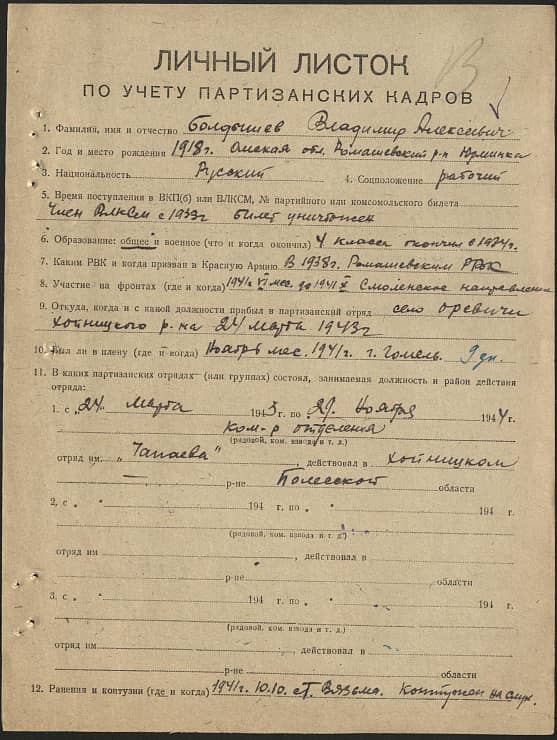 ЛИЧНЫЙ ЛИСТОК
ПО УЧЕТУ ПАРТИЗАНСКИХ КАДРОВ
1. Фамилия, имя и отчество Болдышев Владимир Алексеевич
2. Год и место рождения 1918г. Омская обл. Ромашевский р-н Юрминка
3. Национальность Русский 4. Соцположение рабочий
5. Время поступления в ВКП(б) или ВЛКСМ, № партийного или комсомольского билета
Член Влксм с 1939г билет уничтожен
6. Образование: общее и военное (что и когда окончил) 4 класса окончил в 1934г.
7. Каким РВК и когда призван в Красную Армию В 1938г. Ромашевским РВК
8. Участие на фронтах (где и когда) 1941г VI мес. до 1941 X Смоленское направлени
9. Откуда, когда и с какой должности прибыл в партизанский отряд село Оревичи
Хойницкого р-на 24 марта 1943г
10. Был ли в плену (где и когда) Ноябрь мес. 1941г. г. Гомель. 9 дн.
11. В каких партизанских отрядах (или группах) состоял, занимаемая должность и район действия
отряда:
1. с „24" Марта 1943 г. по „29" Ноября 1944 г.
ком-р отделения
(рядовой, ком. взвода и т. д.)
отряд им. „Чапаева" , действовал в Хойницком
— р-не Полесской области
2. с „ " 194 г. по „ " 194 г.
(рядовой, ком. взвода и т. д.)
отряд им , действовал в
р-не области
3. с „ " 194 г. по „ " 194 г.
(рядовой, ком. взвода и т. д.)
отряд им , действовал в
р-не области
12. Ранения и контузии (где и когда) 1941г. 10.10. ст. Вязьма. Контужен на